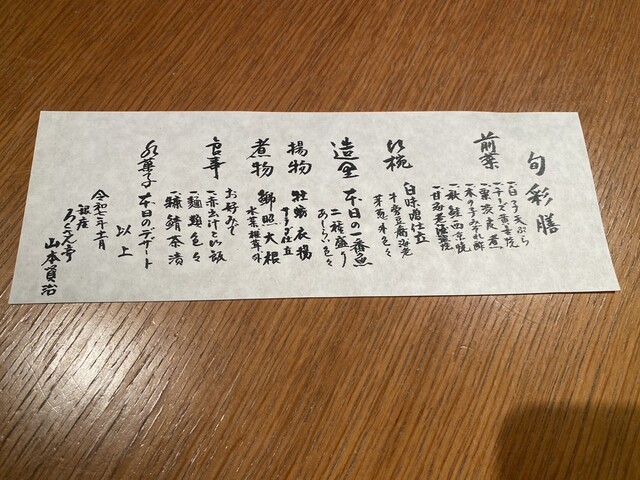 旬彩膳
前菜
一、白子天ぷら
一、チーズ
一、栗渋皮煮
一、木の子みぞれ酢
一、秋鮭西京焼
一、甘
吸椀
白味噌仕立
牛蒡豆腐 海老
芽葱 木色々
造里
本日の一番魚
二種盛り
あしらい色々
揚物
牡蛎衣揚
サラダ仕立
煮物
鰤照大根
水菜
食事
お好みで
一、赤出汁と白飯
一、麺麭色々
一、鯖茶漬
水菓子
本日のデザート
以上
令和七年十一月
銀座
ろくさん亭
山本賢治